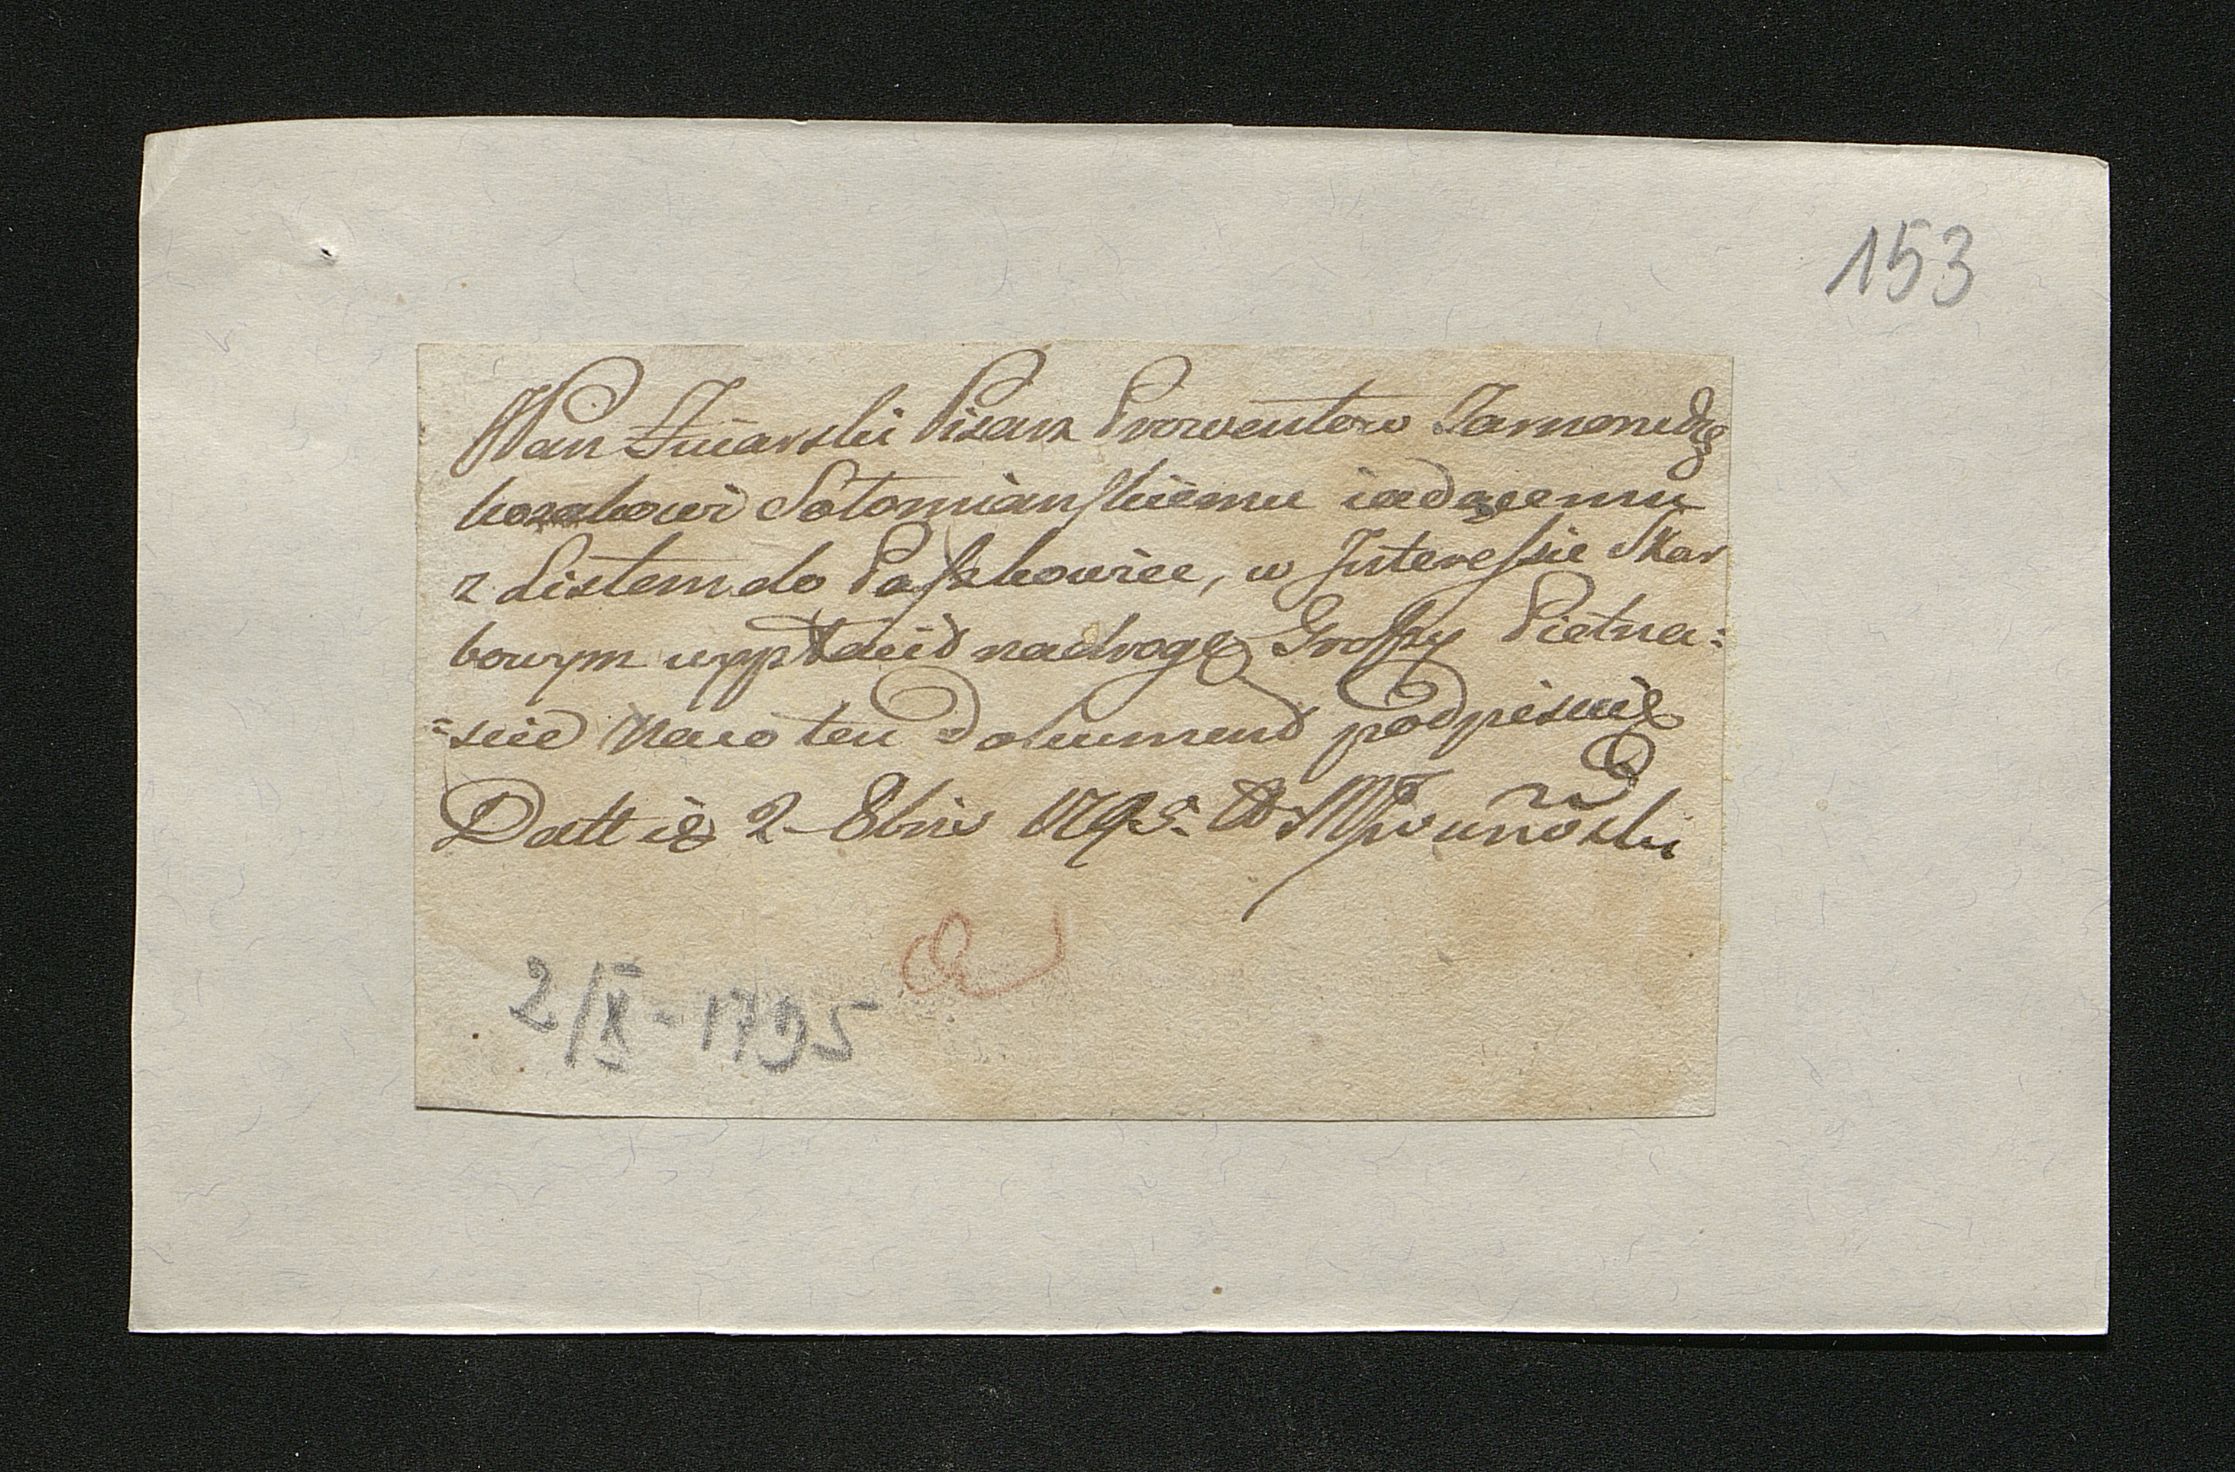 153
WPan Żuławski Pisarz Prowentow
kozakowi Sołomianskiemu iadącemu
z Listem do Paszkowiec, w Interessie Skar
bowym wypłacić nadrogę Groszy Pietna=
=scie Naco ten Dokument podpisuię
Datt ie 2 8bris 1795.
2/X - 1795